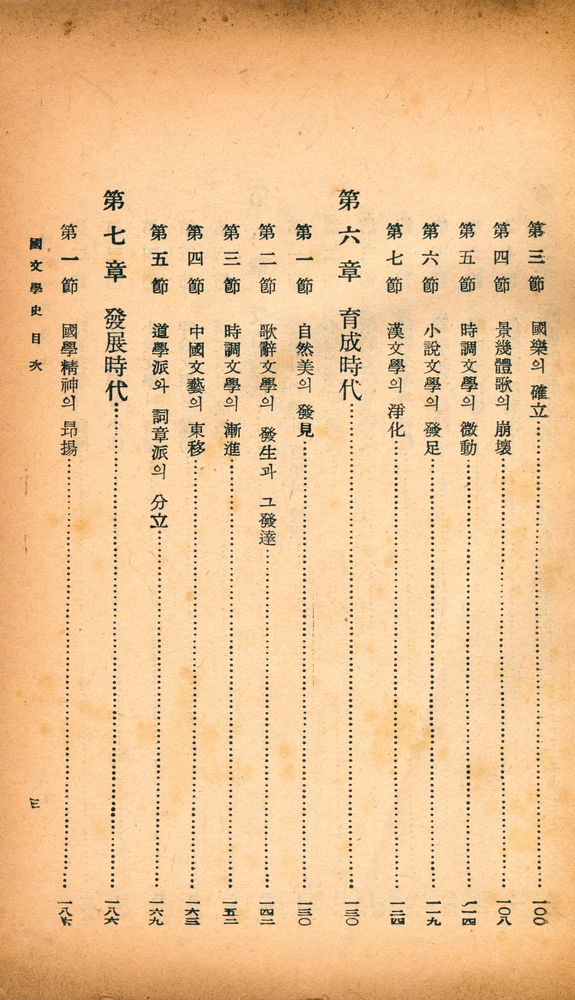 第三節 國樂의 確立 一〇〇
第四節 景幾體歌의 崩壞 一〇八
第五節 時調文學의 微動 一一四
第六節 小說文學의 發足 一一九
第七節 漢文學의 淨化 一二四
第六章 育成時代 一三〇
第一節 自然美의 發見 一三〇
第二節 歌辭文學의 發生과 그 發達 一四二
第三節 時調文學의 漸進 一五二
第四節 中國文藝의 東移 一六三
第五節 道學派와 詞章派의 分立 一六九
第七章 發展時代 一八六
第一節 國學精神의 昂揚 一八六
國文學史目次
三